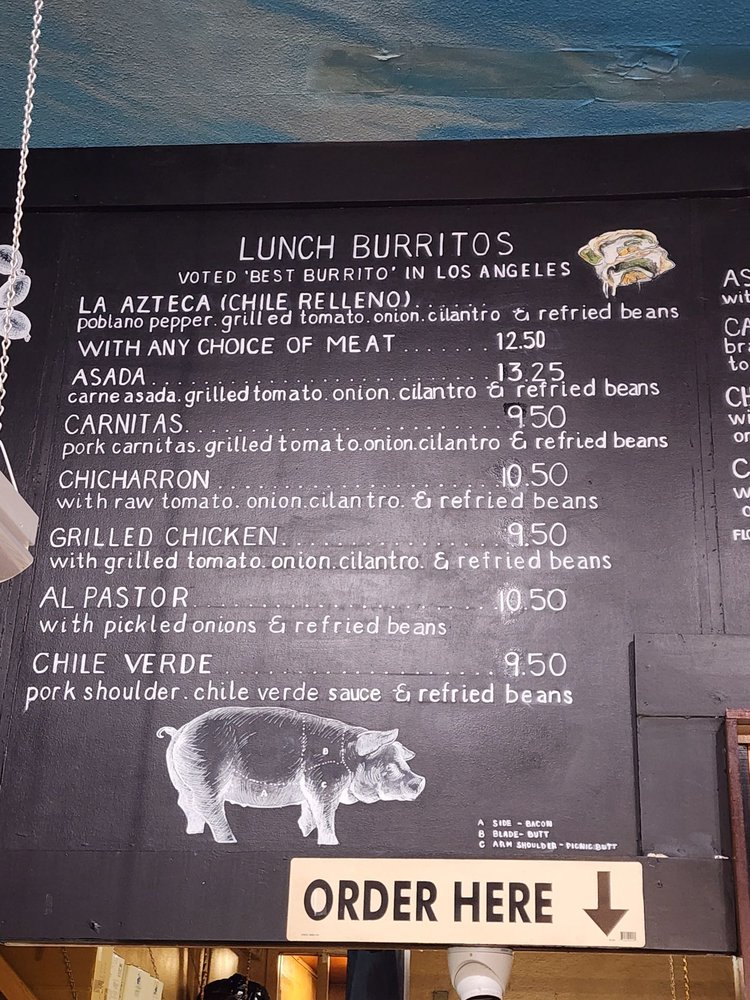 LUNCH BURRITOS
VOTED 'BEST BURRITO' IN LOS ANGELES
LA AZTECA (CHILE RELLENO)......
poblano pepper. grilled tomato. onion. cilantro & refried beans
WITH ANY CHOICE OF MEAT ........ 12.50
ASADA ............................ 13.25
carne asada. grilled tomato. onion. cilantro & refried beans
CARNITAS ......................... 9.50
pork carnitas. grilled tomato. onion. cilantro & refried beans
CHICHARRON ....................... 10.50
with raw tomato. onion. cilantro. & refried beans
GRILLED CHICKEN .................. 9.50
with grilled tomato. onion. cilantro. & refried beans
AL PASTOR ........................ 10.50
with pickled onions & refried beans
CHILE VERDE ...................... 9.50
pork shoulder. chile verde sauce & refried beans
B
A
C
A SIDE - BACON
B BLADE - BUTT
C ARM SHOULDER - PICNIC BUTT
ORDER HERE
AS
wit
CA
bra
to
CH
wi
or
C
w
FLO